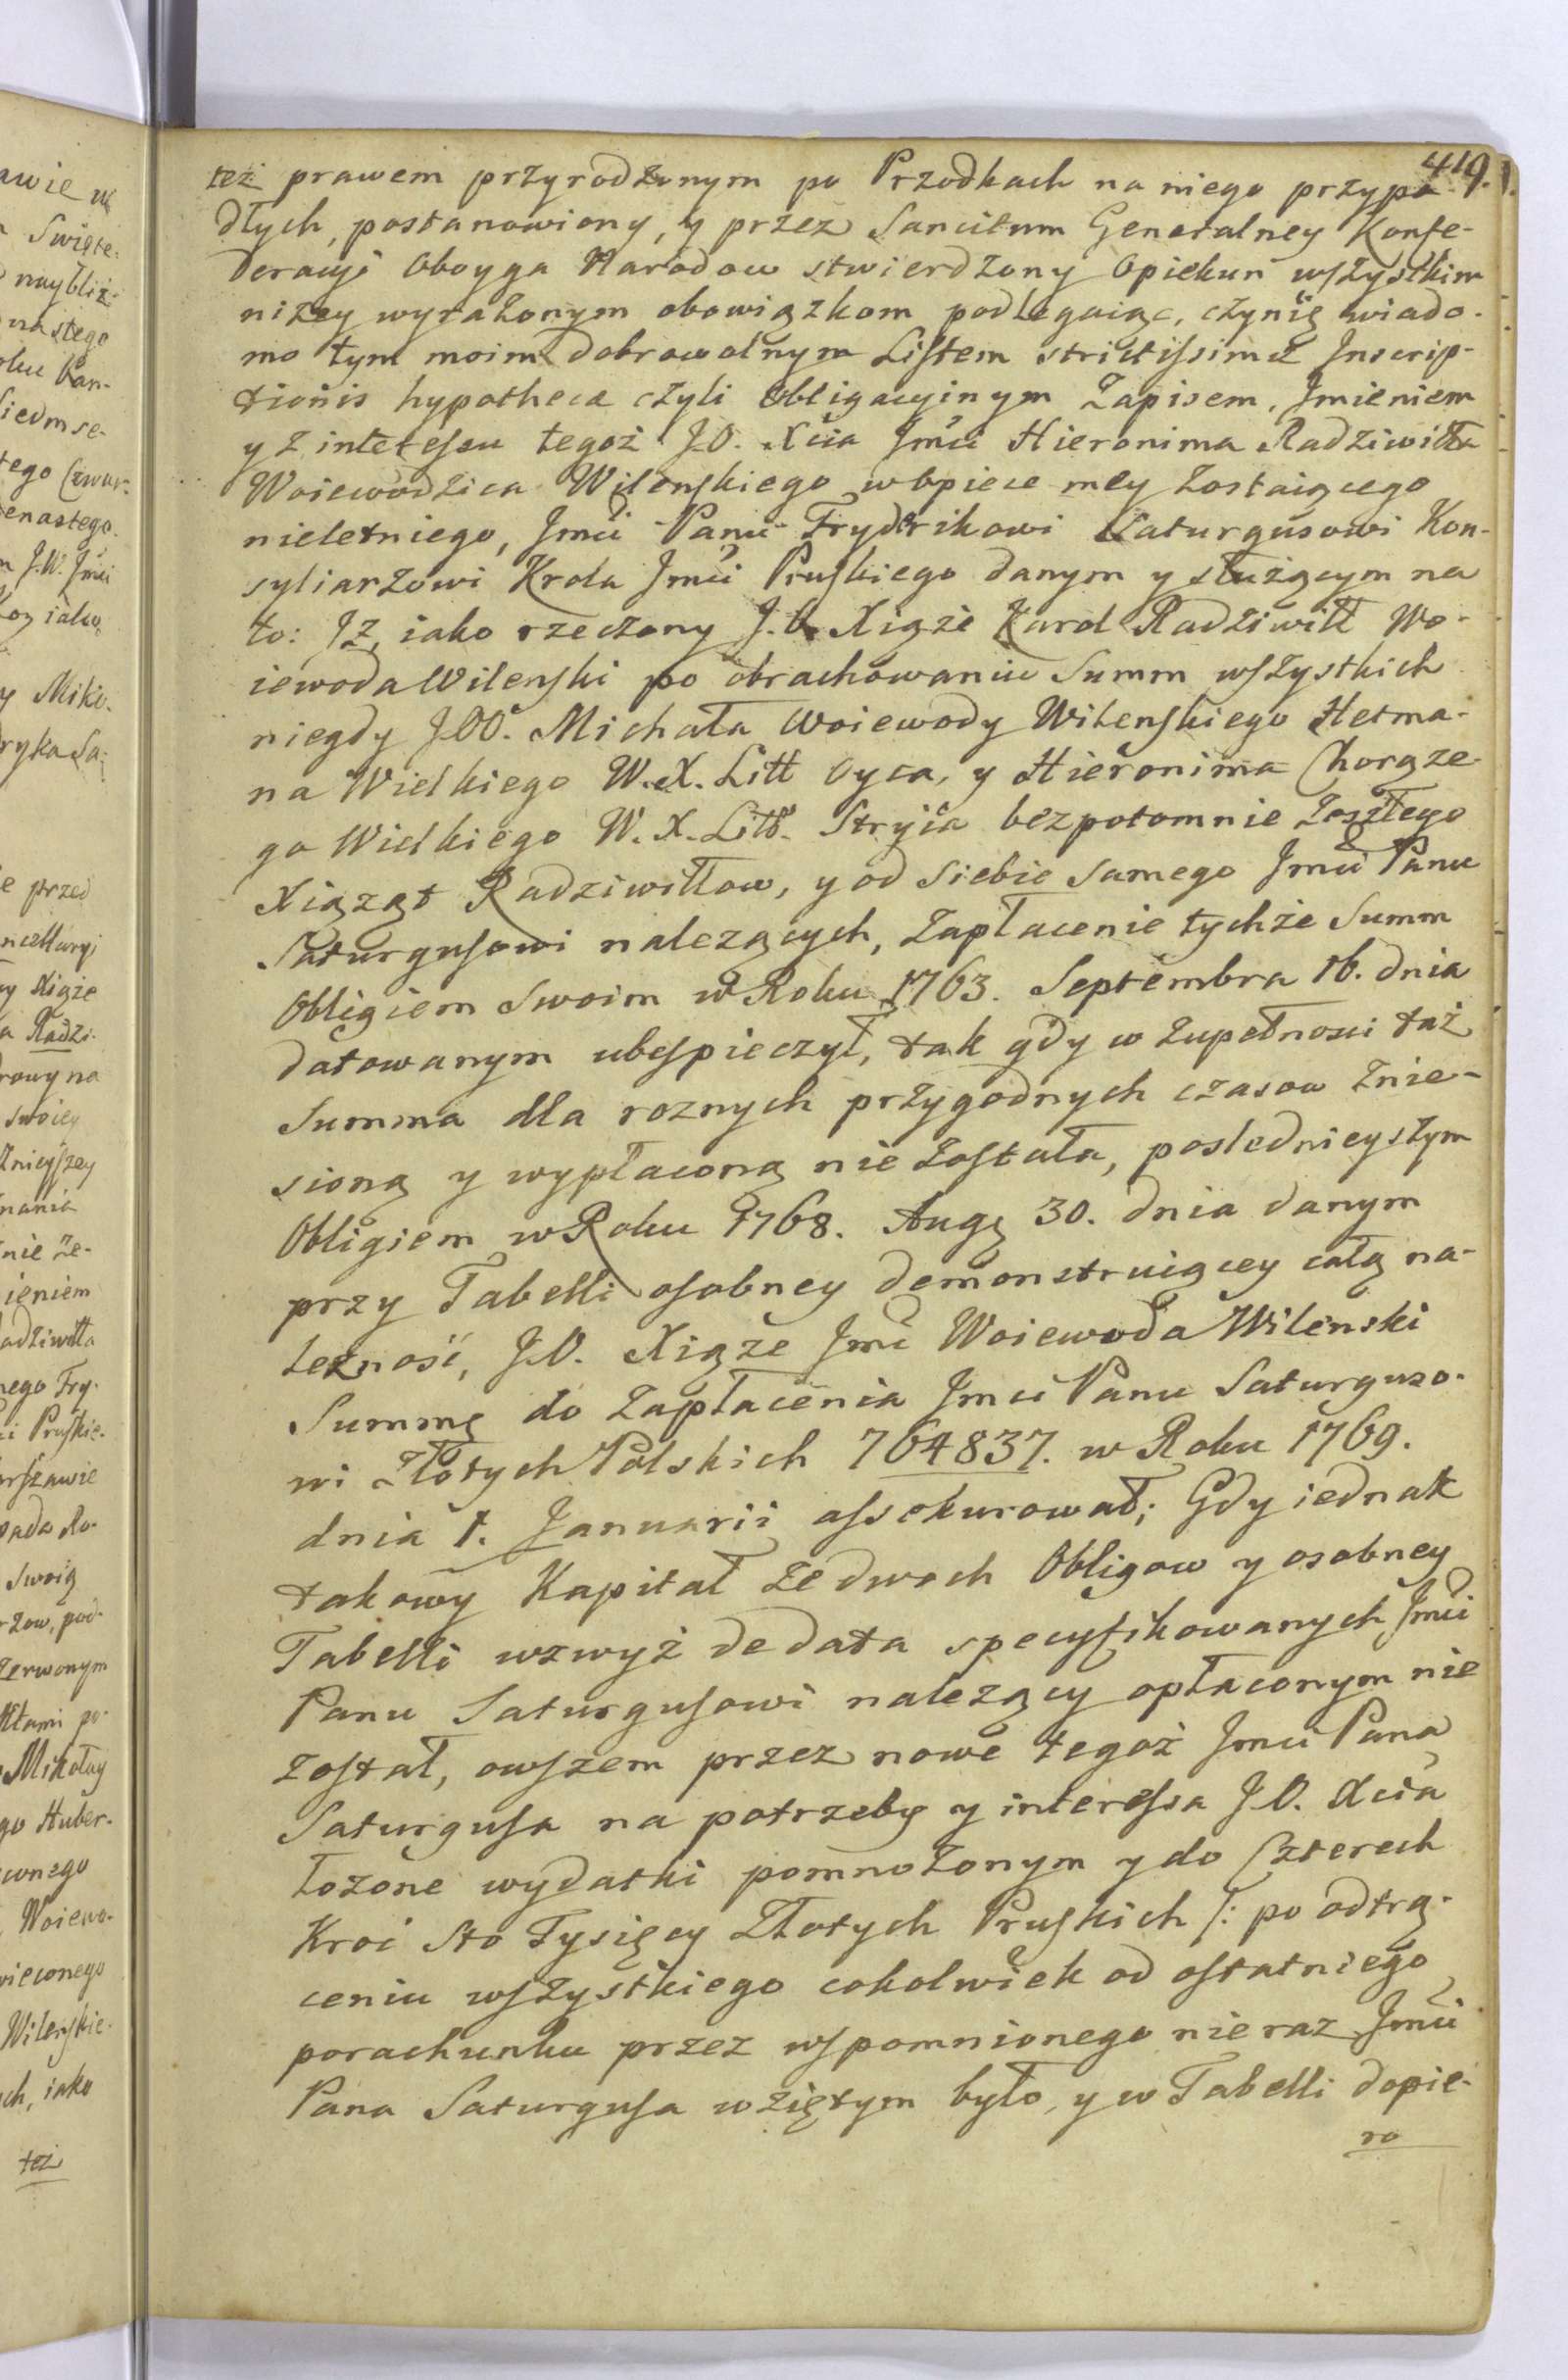 419.
też prawem przyrodzonym po Przodkach na niego przypa-
dłych, postanowiony, y przez Sancitum Generalney Konfe-
deracyi Oboyga Narodow stwierdzony Opiekun wszystkim
niżey wyrażonym obowiązkom podlegaiąc, czynię wiado-
mo tym moim dobrowolnym Listem strictissimæ Inscrip-
tionis hypothecæ czyli Obligacyinym Zapisem, Jmieniem
y z interessu tegoż J.O. Xcia Jmci Hieronima Radziwiłła
Woiewodzica Wilenskiego w Opiece mey zostaiącego
nieletniego, Jmci Panu Frydrikowi Saturgusowi Kon-
syliarzowi Krola Jmci Pruskiego danym y służącym na
to: Jż, iako rzeczony J.O. Xiąże Karol Radziwiłł Wo-
iewoda Wilenski po obrachowaniu Summ wszystkich
niegdy J.OO. Michała Woiewody Wilenskiego Hetma-
na Wielkiego W.X. Litt Oyca, y Hieronima Chorąże-
go Wielkiego W.X. Litt. Stryia bezpotomnie zeszłego
Xiążąt Radziwiłłow, y od siebie samego Jmci Panu
Saturgusowi należących, Zapłacenie tychże Summ
Obligiem swoim w Roku 1763. Septembra 16. dnia
datowanym ubespieczył, tak gdy w zupełnosci taż
Summa dla roznych przygodnych czasow znie-
sioną y wypłaconą nie została, poslednieyszym
Obligiem w Roku 1768. Aug 30. dnia danym
przy Tabelli osobney demonstruiącey całą na-
leżność, J.O. Xiąże Jmć Woiewoda Wilenski
Summę do Zapłacenia Jmci Panu Saturguso-
wi Złotych Polskich 764837. w Roku 1769.
dnia 1. Januarii assekurował; Gdy iednak
takowy Kapitał ze dwoch Obligow y osobney
Tabelli wzwyż de data specyfikowanych Jmci
Panu Saturgusowi należący opłaconym nie
został, owszem przez nowe tegoż Jmci Pana
Saturgusa na potrzeby y interessa J.O. Xcia
łożone wydatki pomnożonym y do Czterech
Kroć Sto Tysięcy Złotych Pruskich /: po odtrą-
ceniu wszystkiego cokolwiek od ostatniego
porachunku przez wspomnionego nieraz Jmci
Pana Saturgusa wziętym było, y w Tabelli dopie-
ro